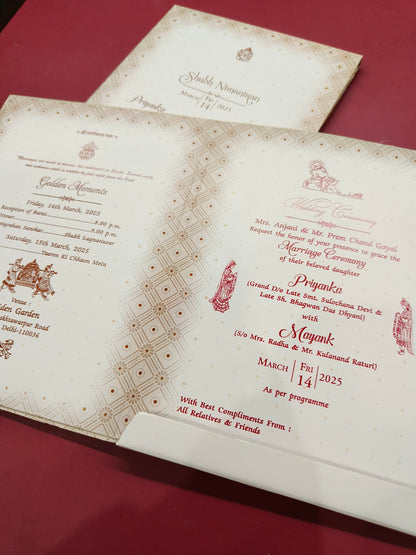 Shubh Nimantran
March | Fri 14 | 2025
Priyanka
Golden Moments
Friday, 14th March, 2025
Reception of Barat 8.00 p.m.
Dinner 9.00 p.m.
Shubh Lagnanusar
Saturday, 15th March, 2025
Taaron Ki Chhaon Mein
Venue :
Garden
Road
Delhi-110036
Wedding Ceremony
Mrs. Anjani & Mr. Prem Chand Goyal
Request the honor of your presence to grace the
Marriage Ceremony
of their beloved daughter
Priyanka
(Grand D/o Late Smt. Sulochana Devi &
Late Sh. Bhagwan Das Dhyani)
with
Mayank
(S/o Mrs. Radha & Mr. Kulanand Raturi)
March | Fri 14 | 2025
As per programme
With Best Compliments From :
All Relatives & Friends